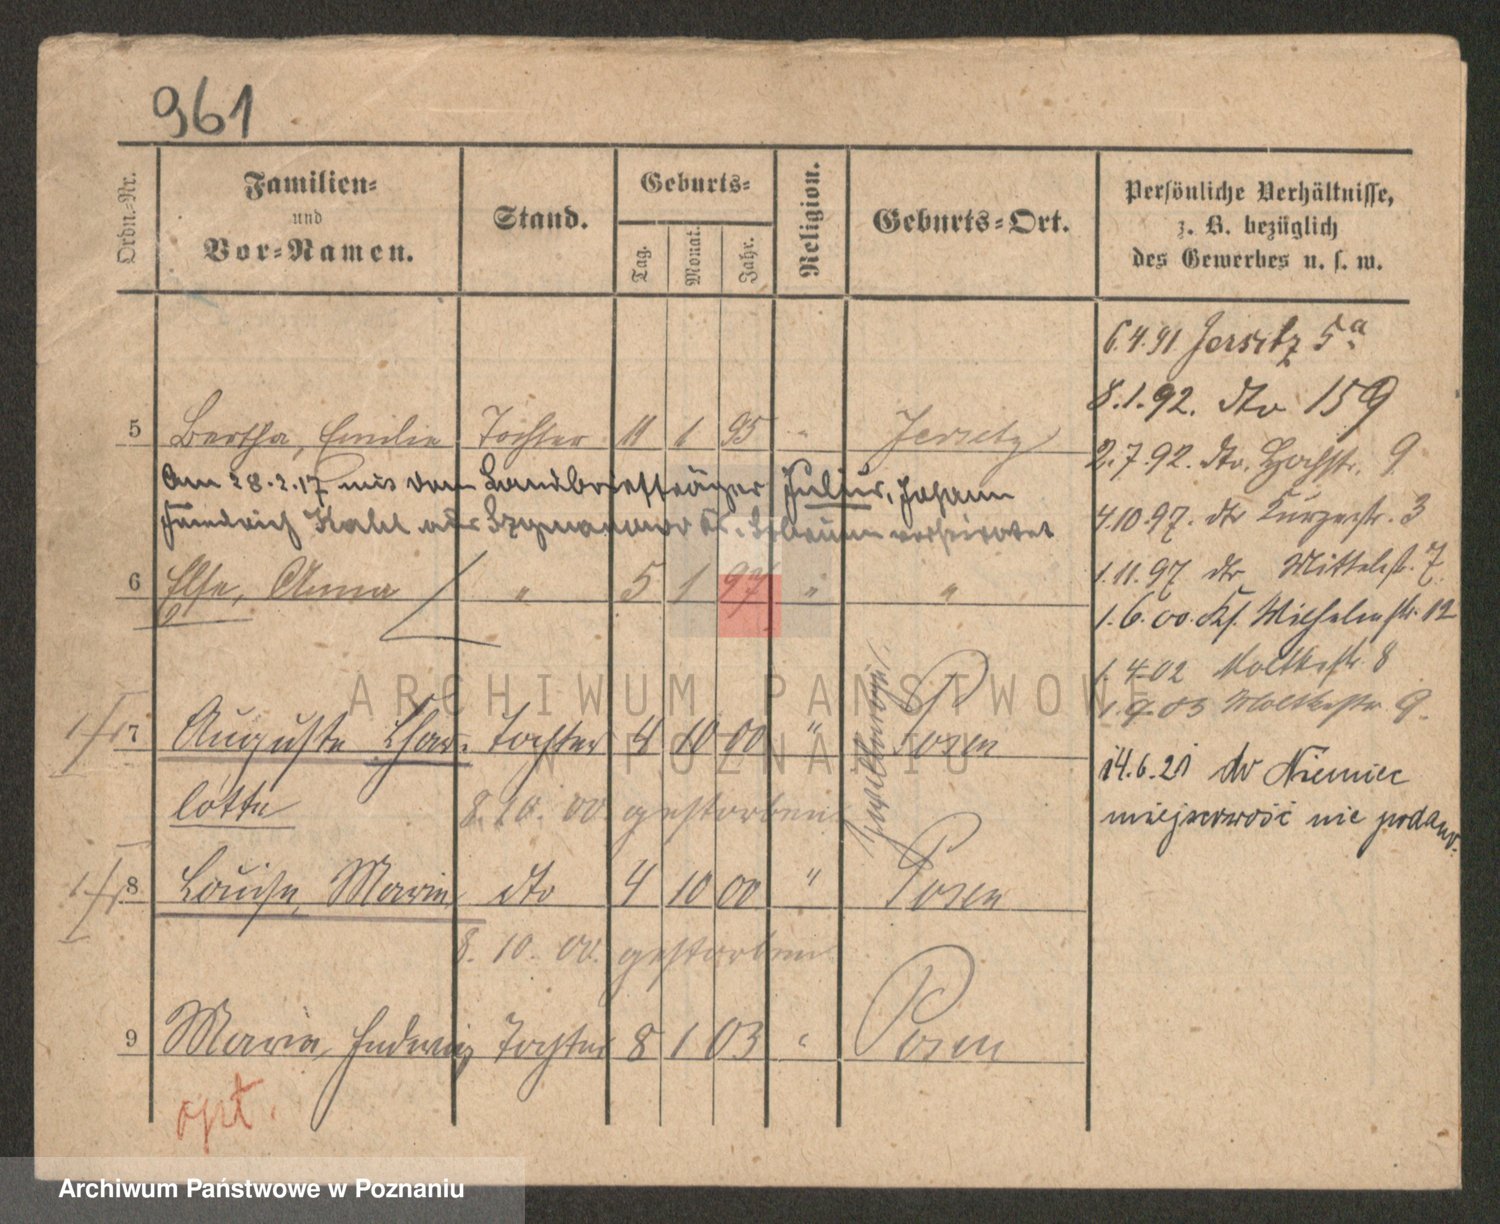 961
Ordn.-Nr.
Familien-
und
Vor-Namen.
Stand.
Geburts-
Tag.
Monat.
Jahr.
Religion.
Geburts-Ort.
Persönliche Verhältnisse,
z. B. bezüglich
des Gewerbes u. s. w.
6.4.91 Jersitz 5a
8.1.92. dto 159
5 Bertha, Emilie Tochter 11 1 95 " Jersitz
2.7.92. dto. Hochstr. 9
Am 28.2.17 mit dem Landbriefträger Julius, Johann
Friedrich Kahl aus verheiratet
4.10.97. dto Kurzestr. 3
1.11.97 dto Mittelstr. 7
6 Else, Anna " 5 1 97 " "
1.6.00. Wilhelmstr. 12
1.4.02 Moltkestr. 8
1.9.03 Moltkestr. 9.
7 Auguste Char- Tochter 4 10 00 " Posen
lotte 8. 10. 00. gestorben
Zwillinge
14.6.21 do Niemiec
miejscowość nie podano.
8 Louise, Marie dto 4 10 00 " Posen
8. 10. 00. gestorben
9 Maria, Hedwig Tochter 8 1 03 " Posen
opt.
ARCHIWUM PAŃSTWOWE
W POZNANIU
Archiwum Państwowe w Poznaniu